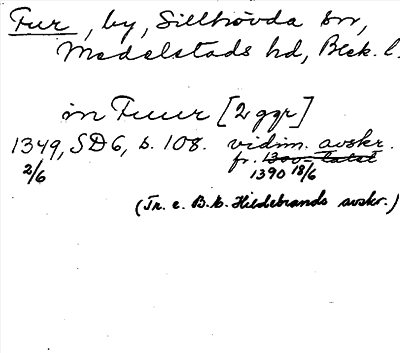 Fur, by, Sillhövda sn,
Medelstads hd, Blek. l.
in Fuur [2 ggr]
1349, SD6, s. 108. vidim. avskr.
2/6 fr. 1300-talet
1390 18/6
(Tr. e. B. E. Hildebrands avskr.)